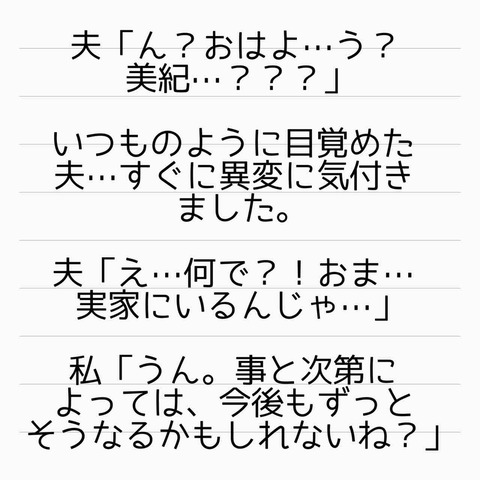 夫「ん？おはよ…う？
美紀…？？？」
いつものように目覚めた
夫…すぐに異変に気付き
ました。
夫「え…何で？！おま…
実家にいるんじゃ…」
私「うん。事と次第に
よっては、今後もずっと
そうなるかもしれないね？」